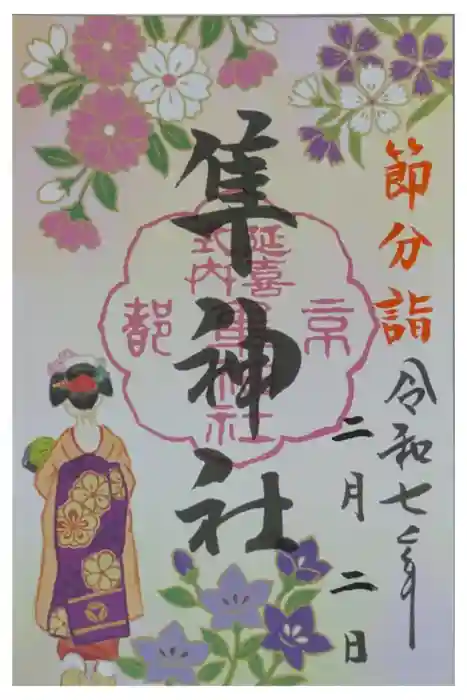 節分詣
令和七年
二月二日
隼神社
延喜
式内
京
都
隼神社